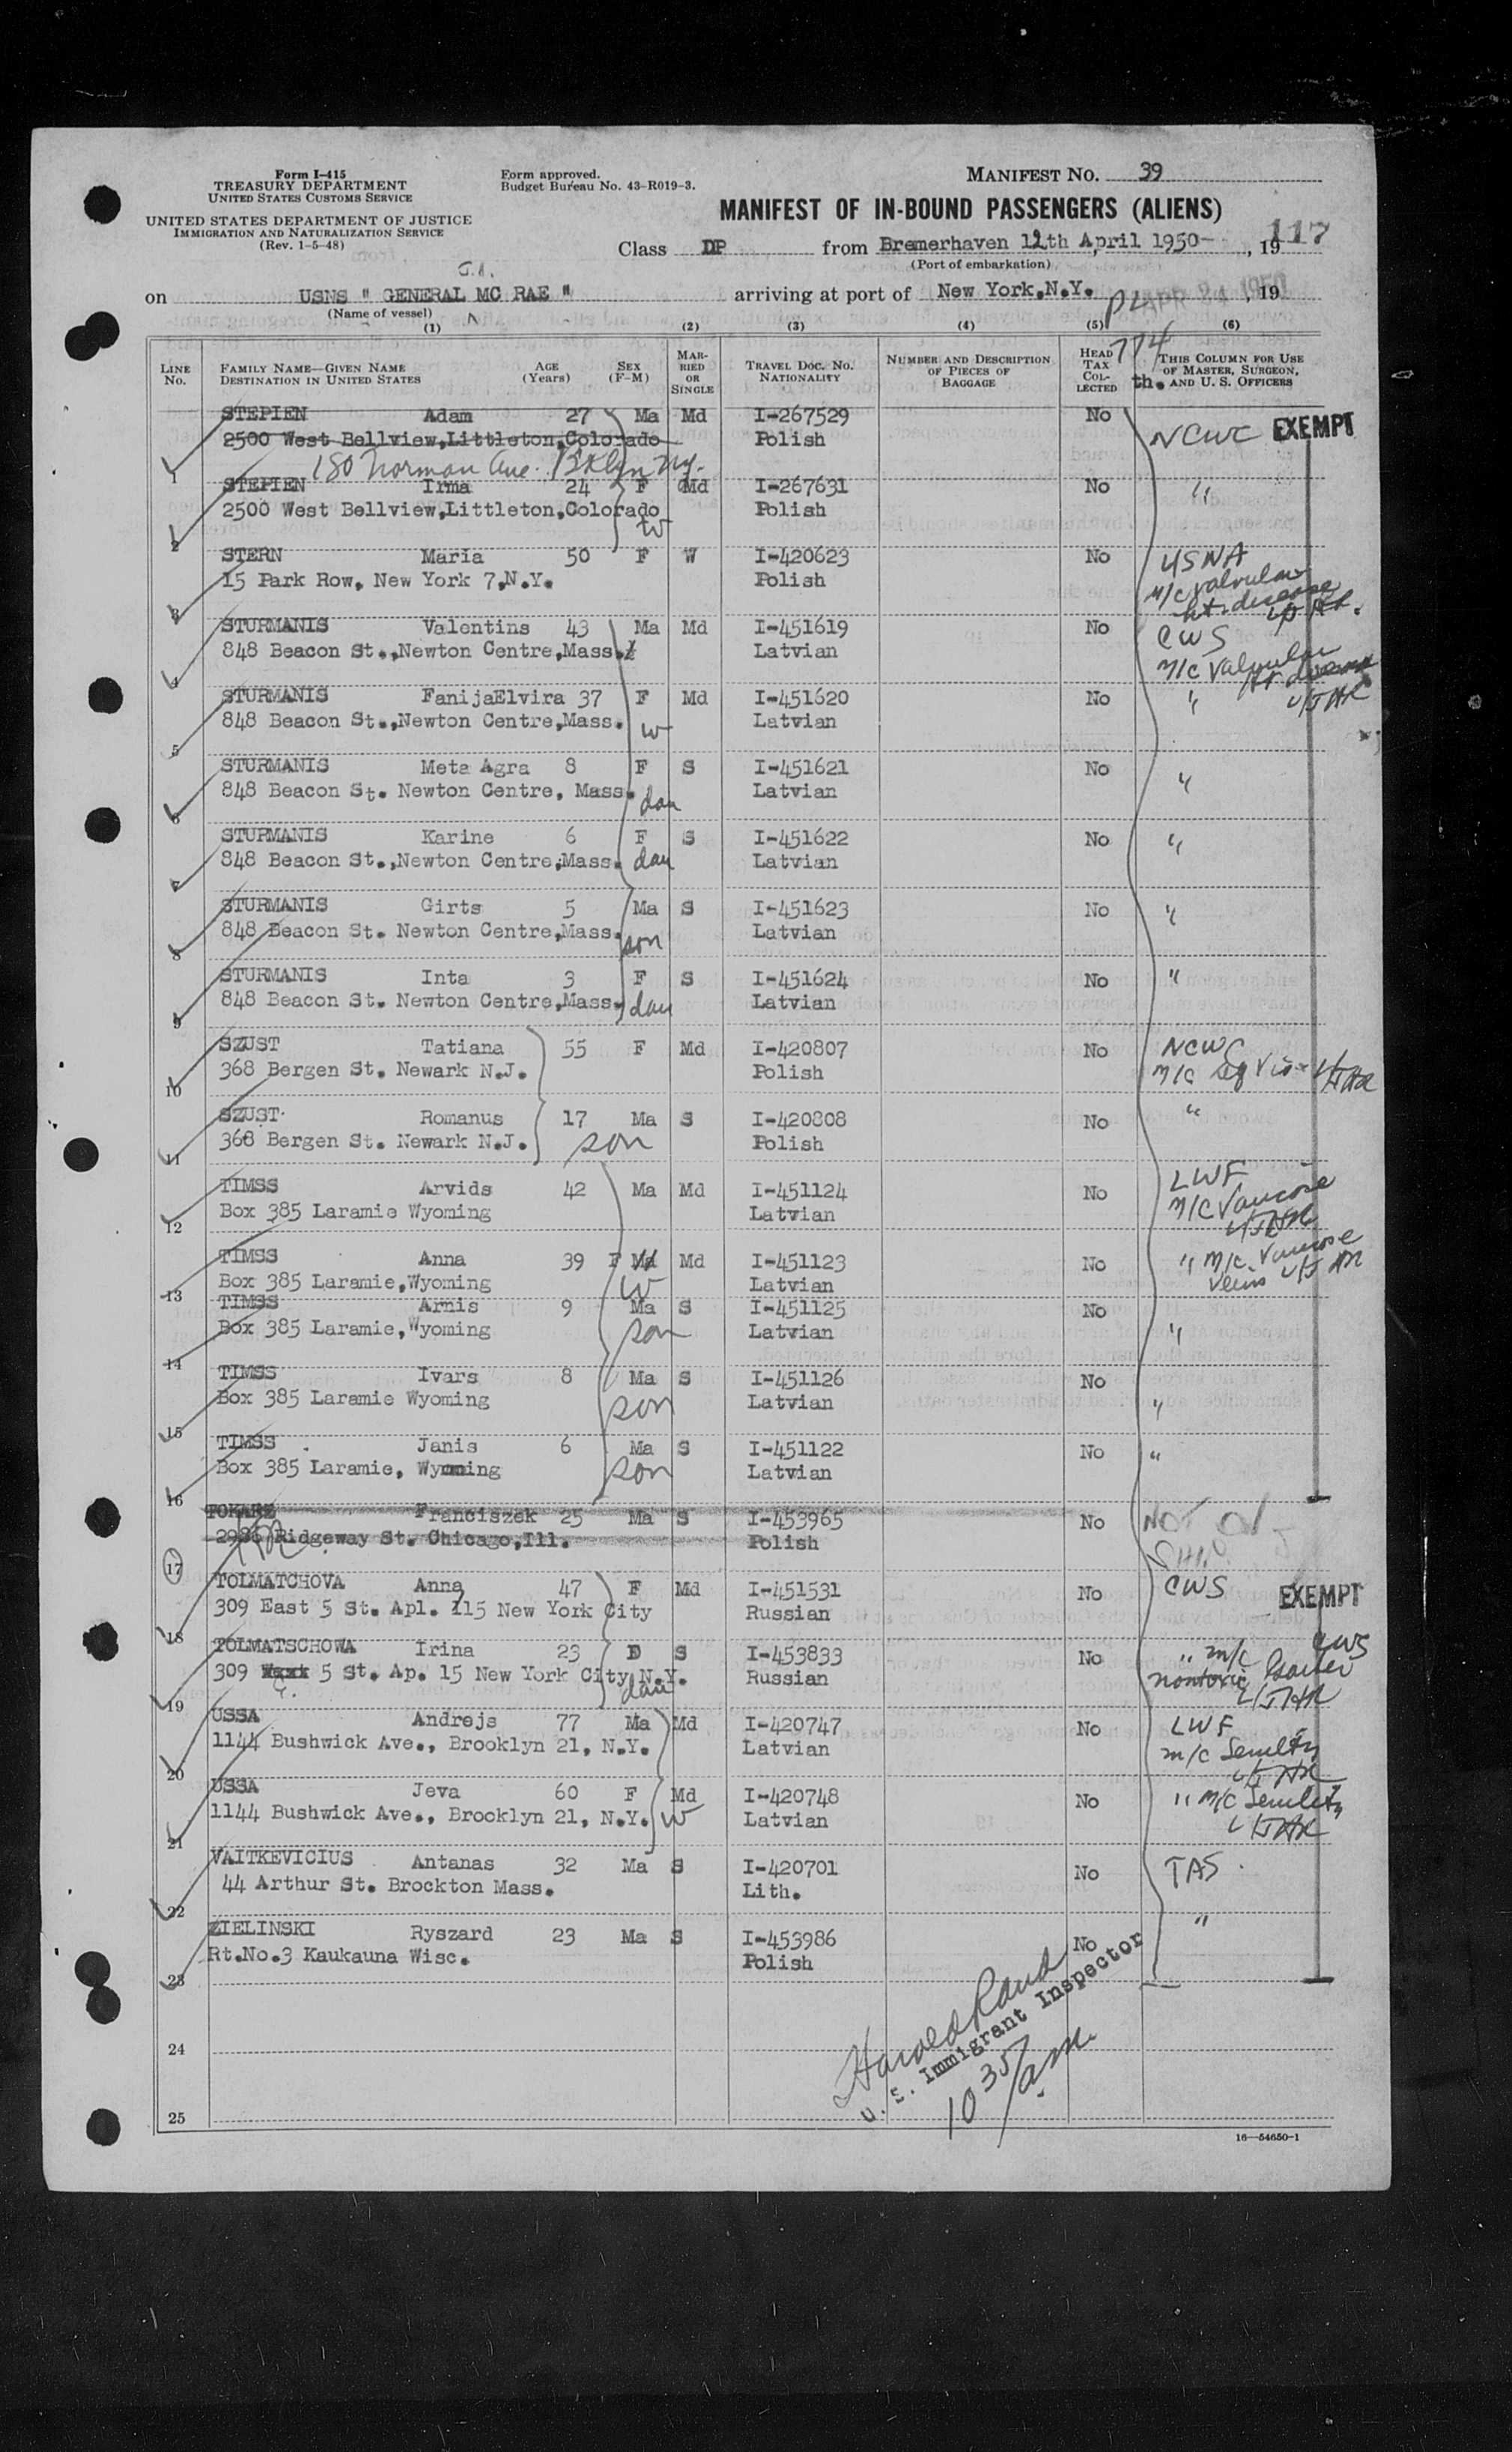 Form I-415
TREASURY DEPARTMENT
UNITED STATES CUSTOMS SERVICE
UNITED STATES DEPARTMENT OF JUSTICE
IMMIGRATION AND NATURALIZATION SERVICE
(Rev. 1-5-48)
Form approved.
Budget Bureau No. 43-R019-3.
MANIFEST NO. 39
MANIFEST OF IN-BOUND PASSENGERS (ALIENS)
117
Class DP from Bremerhaven 12th April 1950- , 19
(Port of embarkation)
on USNS " GENERAL MC RAE " arriving at port of New York,N.Y. APR 24 1950 , 19
(Name of vessel)
(1) (2) (3) (4) (5) (6)
LINE No. FAMILY NAME—GIVEN NAME DESTINATION IN UNITED STATES AGE (Years) SEX (F-M) MARRIED OR SINGLE TRAVEL DOC. NO. NATIONALITY NUMBER AND DESCRIPTION OF PIECES OF BAGGAGE HEAD TAX COLLECTED THIS COLUMN FOR USE OF MASTER, SURGEON, AND U. S. OFFICERS
STEPIEN Adam 27 Ma Md I-267529 No NCWC EXEMPT
2500 West Bellview,Littleton,Colorado Polish
1 180 Norman Ave. Bklyn NY.
STEPIEN Irma 24 F Md I-267631 No "
2500 West Bellview,Littleton,Colorado Polish
2 w
STERN Maria 50 F W I-420623 No USNA
15 Park Row, New York 7,N.Y. Polish m/c valvular
3 ht. disease
STURMANIS Valentins 43 Ma Md I-451619 No CWS
848 Beacon St.,Newton Centre,Mass. Latvian m/c valvular
4 ht. disease
STURMANIS FanijaElvira 37 F Md I-451620 No "
848 Beacon St.,Newton Centre,Mass. w Latvian
5
STURMANIS Meta Agra 8 F S I-451621 No "
848 Beacon St. Newton Centre, Mass. dau Latvian
6
STURMANIS Karine 6 F S I-451622 No "
848 Beacon St.,Newton Centre,Mass. dau Latvian
7
STURMANIS Girts 5 Ma S I-451623 No "
848 Beacon St. Newton Centre,Mass. son Latvian
8
STURMANIS Inta 3 F S I-451624 No "
848 Beacon St. Newton Centre,Mass. dau Latvian
9
SZUST Tatiana 55 F Md I-420807 No NCWC
368 Bergen St. Newark N.J. Polish m/c
10
SZUST Romanus 17 Ma S I-420808 No "
368 Bergen St. Newark N.J. son Polish
11
TIMSS Arvids 42 Ma Md I-451124 No LWF
Box 385 Laramie Wyoming Latvian m/c Varicose
12
TIMSS Anna 39 F Md I-451123 No " m/c Varicose
Box 385 Laramie,Wyoming w Latvian Veins
13
TIMSS Arnis 9 Ma S I-451125 No
Box 385 Laramie,Wyoming son Latvian "
14
TIMSS Ivars 8 Ma S I-451126 No
Box 385 Laramie Wyoming son Latvian "
15
TIMSS Janis 6 Ma S I-451122 No "
Box 385 Laramie, Wyoming son Latvian
16
TOKARZ Franciszek 25 Ma S I-453965 No NOT
2986 Ridgeway St. Chicago,Ill. Polish
17
TOLMATCHOVA Anna 47 F Md I-451531 No CWS EXEMPT
309 East 5 St. Apl. 115 New York City Russian
18
TOLMATSCHOWA Irina 23 S I-453833 No " m/c CWS
309 E. 5 St. Ap. 15 New York City N.Y. dau Russian nontoxic Goiter
19
USSA Andrejs 77 Ma Md I-420747 No LWF
1144 Bushwick Ave., Brooklyn 21, N.Y. Latvian m/c Senility
20
USSA Jeva 60 F Md I-420748 No " m/c Senility
1144 Bushwick Ave., Brooklyn 21, N.Y. W Latvian
21
VAITKEVICIUS Antanas 32 Ma S I-420701 No TAS
44 Arthur St. Brockton Mass. Lith.
22
ZIELINSKI Ryszard 23 Ma S I-453986 No "
Rt.No.3 Kaukauna Wisc. Polish
23
24
25
Harold Rand
U. S. Immigrant Inspector
10 35/am.
16—54650-1